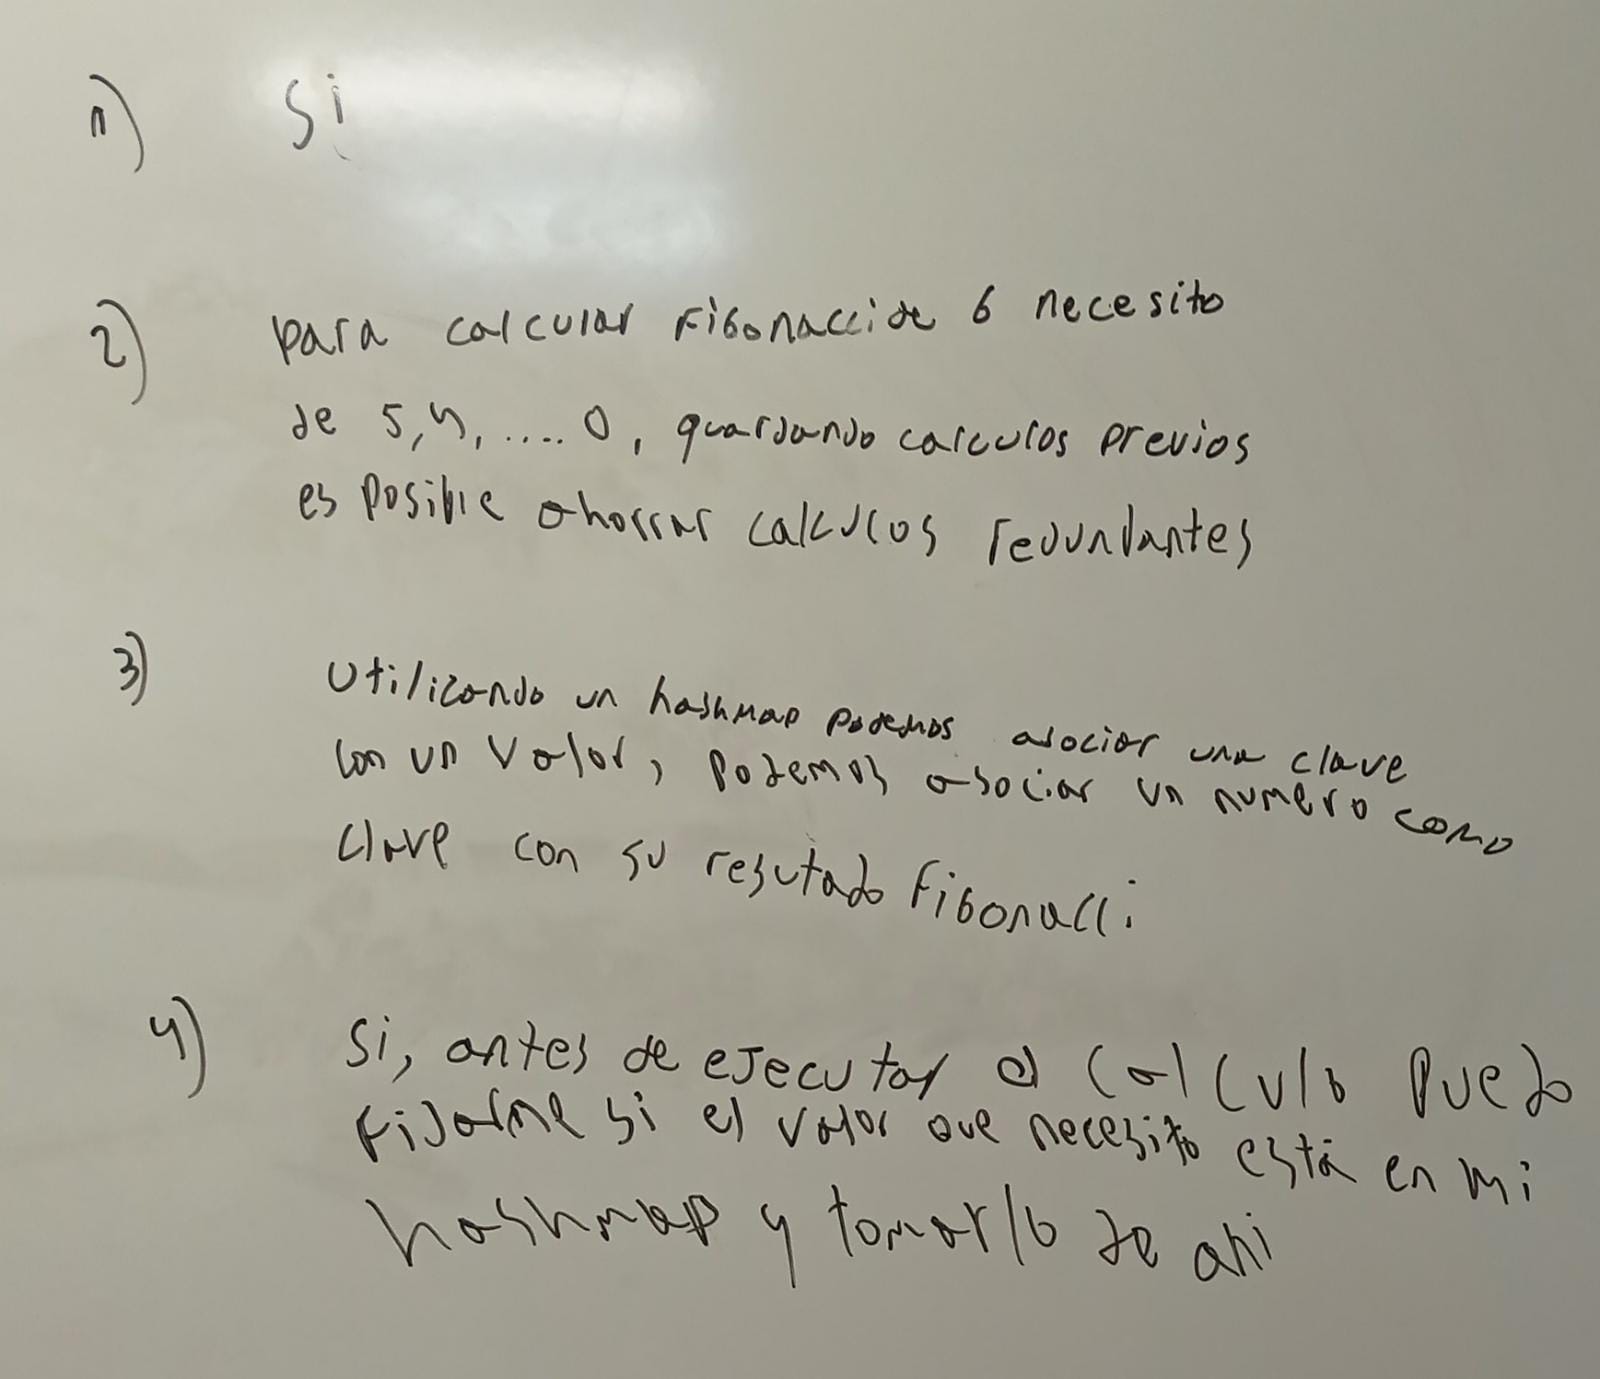 1) Si
2) para calcular Fibonacci de 6 necesito
de 5,4, .... 0, guardando calculos previos
es posible ahorrar calculos redundantes
3) Utilizando un hashmap podemos asociar una clave
con un valor, podemos asociar un numero como
clave con su resutado Fibonacci
4) Si, antes de ejecutar el calculo puedo
fijarme si el valor que necesito está en mi
hashmap y tomarlo de ahi